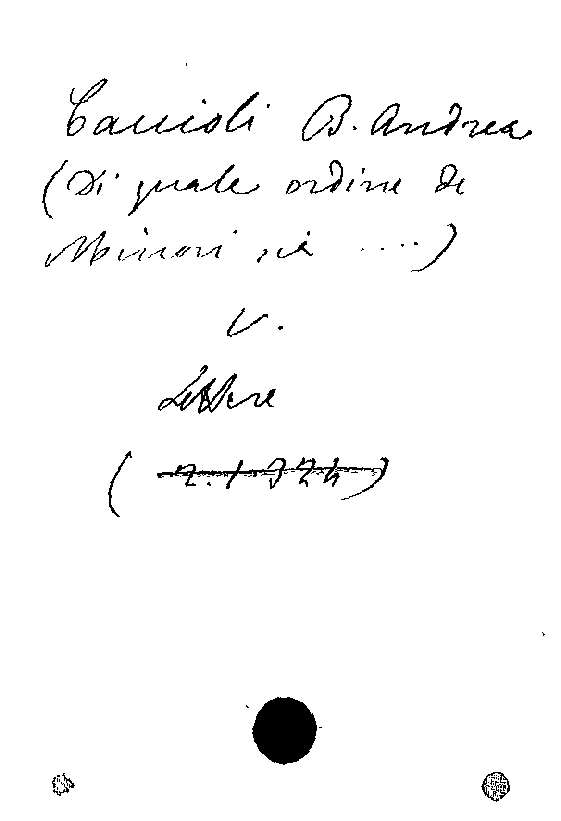 Caccioli B. Andrea
(Di quale ordine de
Minori sia ....)
V.
Lettere
(n. 1324)